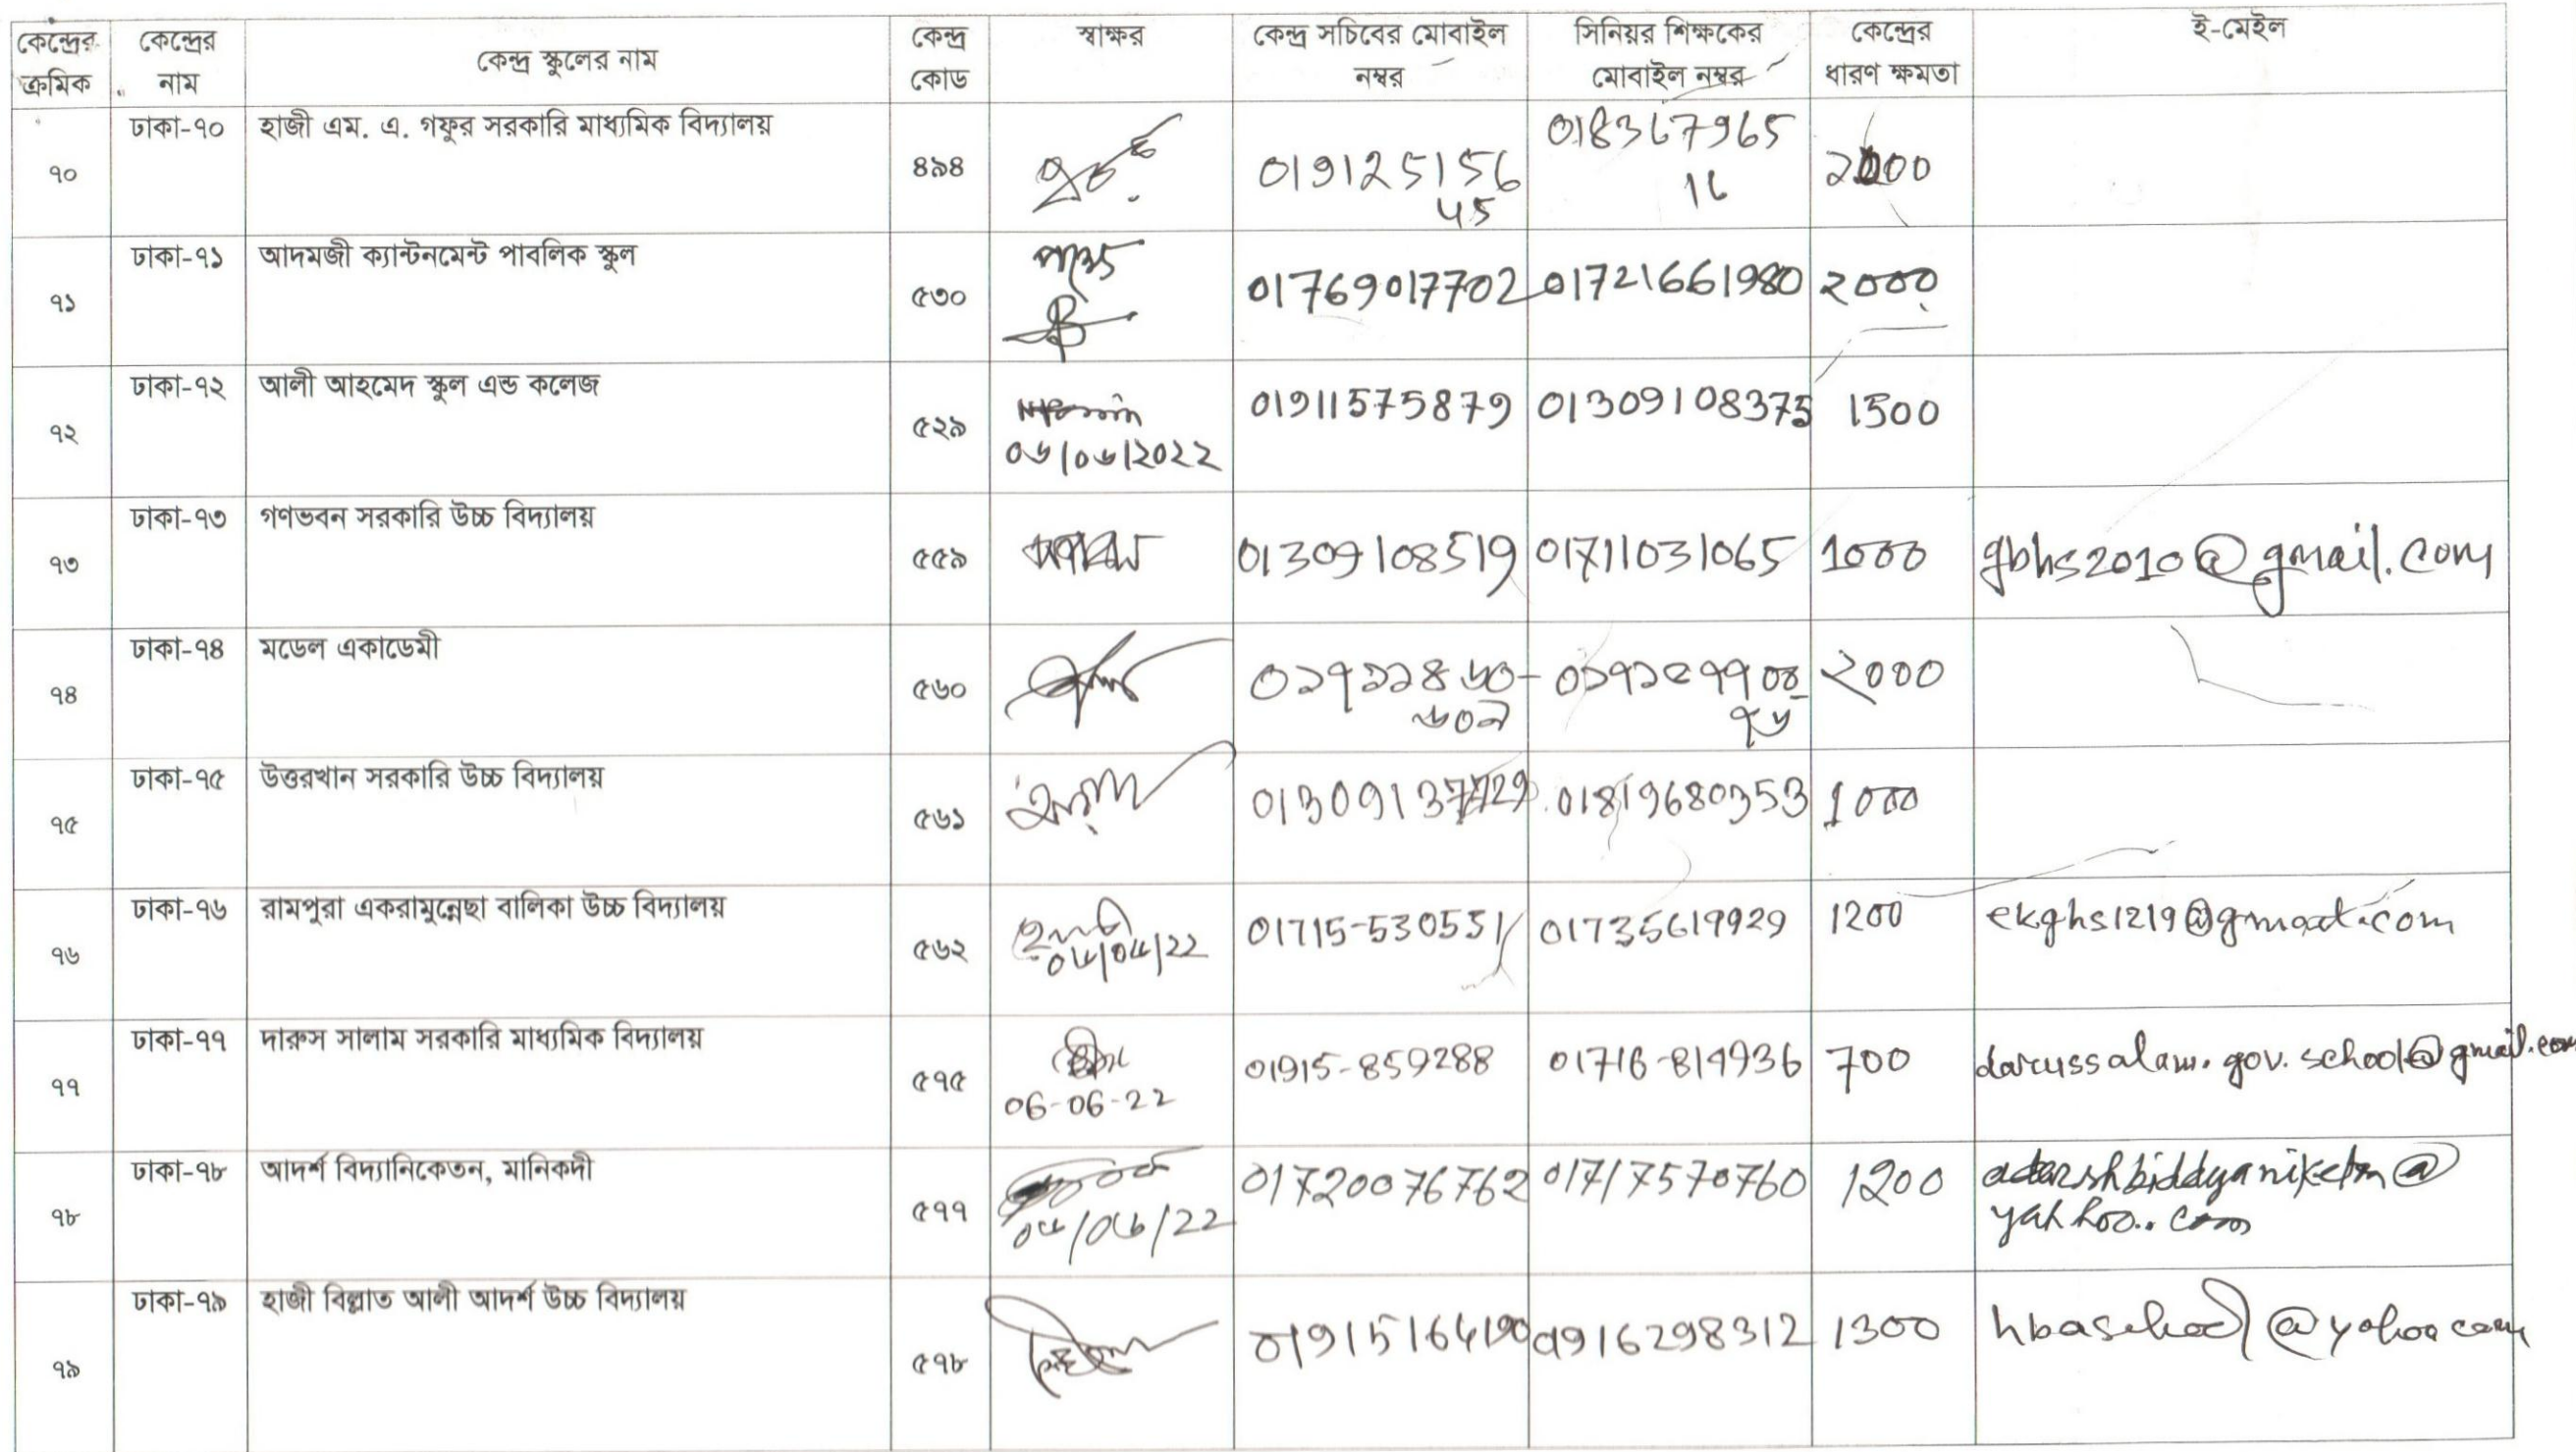 কেন্দ্রের ক্রমিক কেন্দ্রের নাম কেন্দ্র স্কুলের নাম কেন্দ্র কোড স্বাক্ষর কেন্দ্র সচিবের মোবাইল নম্বর সিনিয়র শিক্ষকের মোবাইল নম্বর কেন্দ্রের ধারণ ক্ষমতা ই-মেইল
৭০ ঢাকা-৭০ হাজী এম. এ. গফুর সরকারি মাধ্যমিক বিদ্যালয় ৪৯৪ 01912515645 01836796516
৭১ ঢাকা-৭১ আদমজী ক্যান্টনমেন্ট পাবলিক স্কুল ৫৩০ 01769017702 01721661980 ২000
৭২ ঢাকা-৭২ আলী আহমেদ স্কুল এন্ড কলেজ ৫২৯ ০৬/০৬/2022 01911575879 01309108375 1500
৭৩ ঢাকা-৭৩ গণভবন সরকারি উচ্চ বিদ্যালয় ৫৫৯ 01309108519 01711031065 1000 gbhs2010@gmail.com
৭৪ ঢাকা-৭৪ মডেল একাডেমী ৫৬০ ০১৭১১৪৬০-৬০৯ ০১৭১৫৭৭০৪৭৬ ২০০০
৭৫ ঢাকা-৭৫ উত্তরখান সরকারি উচ্চ বিদ্যালয় ৫৬১ 01819680353 1000
৭৬ ঢাকা-৭৬ রামপুরা একরামুন্নেছা বালিকা উচ্চ বিদ্যালয় ৫৬২ 01715-530551 01735619929 1200 ekghs1219@gmail.com
৭৭ ঢাকা-৭৭ দারুস সালাম সরকারি মাধ্যমিক বিদ্যালয় ৫৭৫ 06-06-22 01915-859288 01716-814936 700 darussalam.gov.school@gmail.com
৭৮ ঢাকা-৭৮ আদর্শ বিদ্যানিকেতন, মানিকদী ৫৭৭ 01720076762 01717570760 1200 adarshbiddyaniketan@
yahoo.com
৭৯ ঢাকা-৭৯ হাজী বিল্লাত আলী আদর্শ উচ্চ বিদ্যালয় ৫৭৮ 01915164190 01916298312 1300 hbaschool@yahoo.com